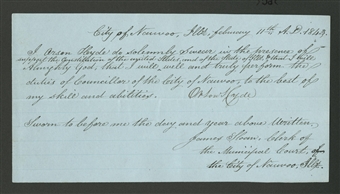 City of Nauvoo, Ills. february 11th A.D. 1843.
I Orson Hyde do solemnly Swear in the presence of
support the Constitution of the united States, and of the State of Ills. & that I will
Almighty God, that I will, well and truly perform the
duties of Councillor of the City of Nauvoo, to the best of
my skill and abilities. Orson Hyde
Sworn to before me the day and year above Written
James Sloan. Clerk of
the Municipal Court, of
the City of Nauvoo, Ills.